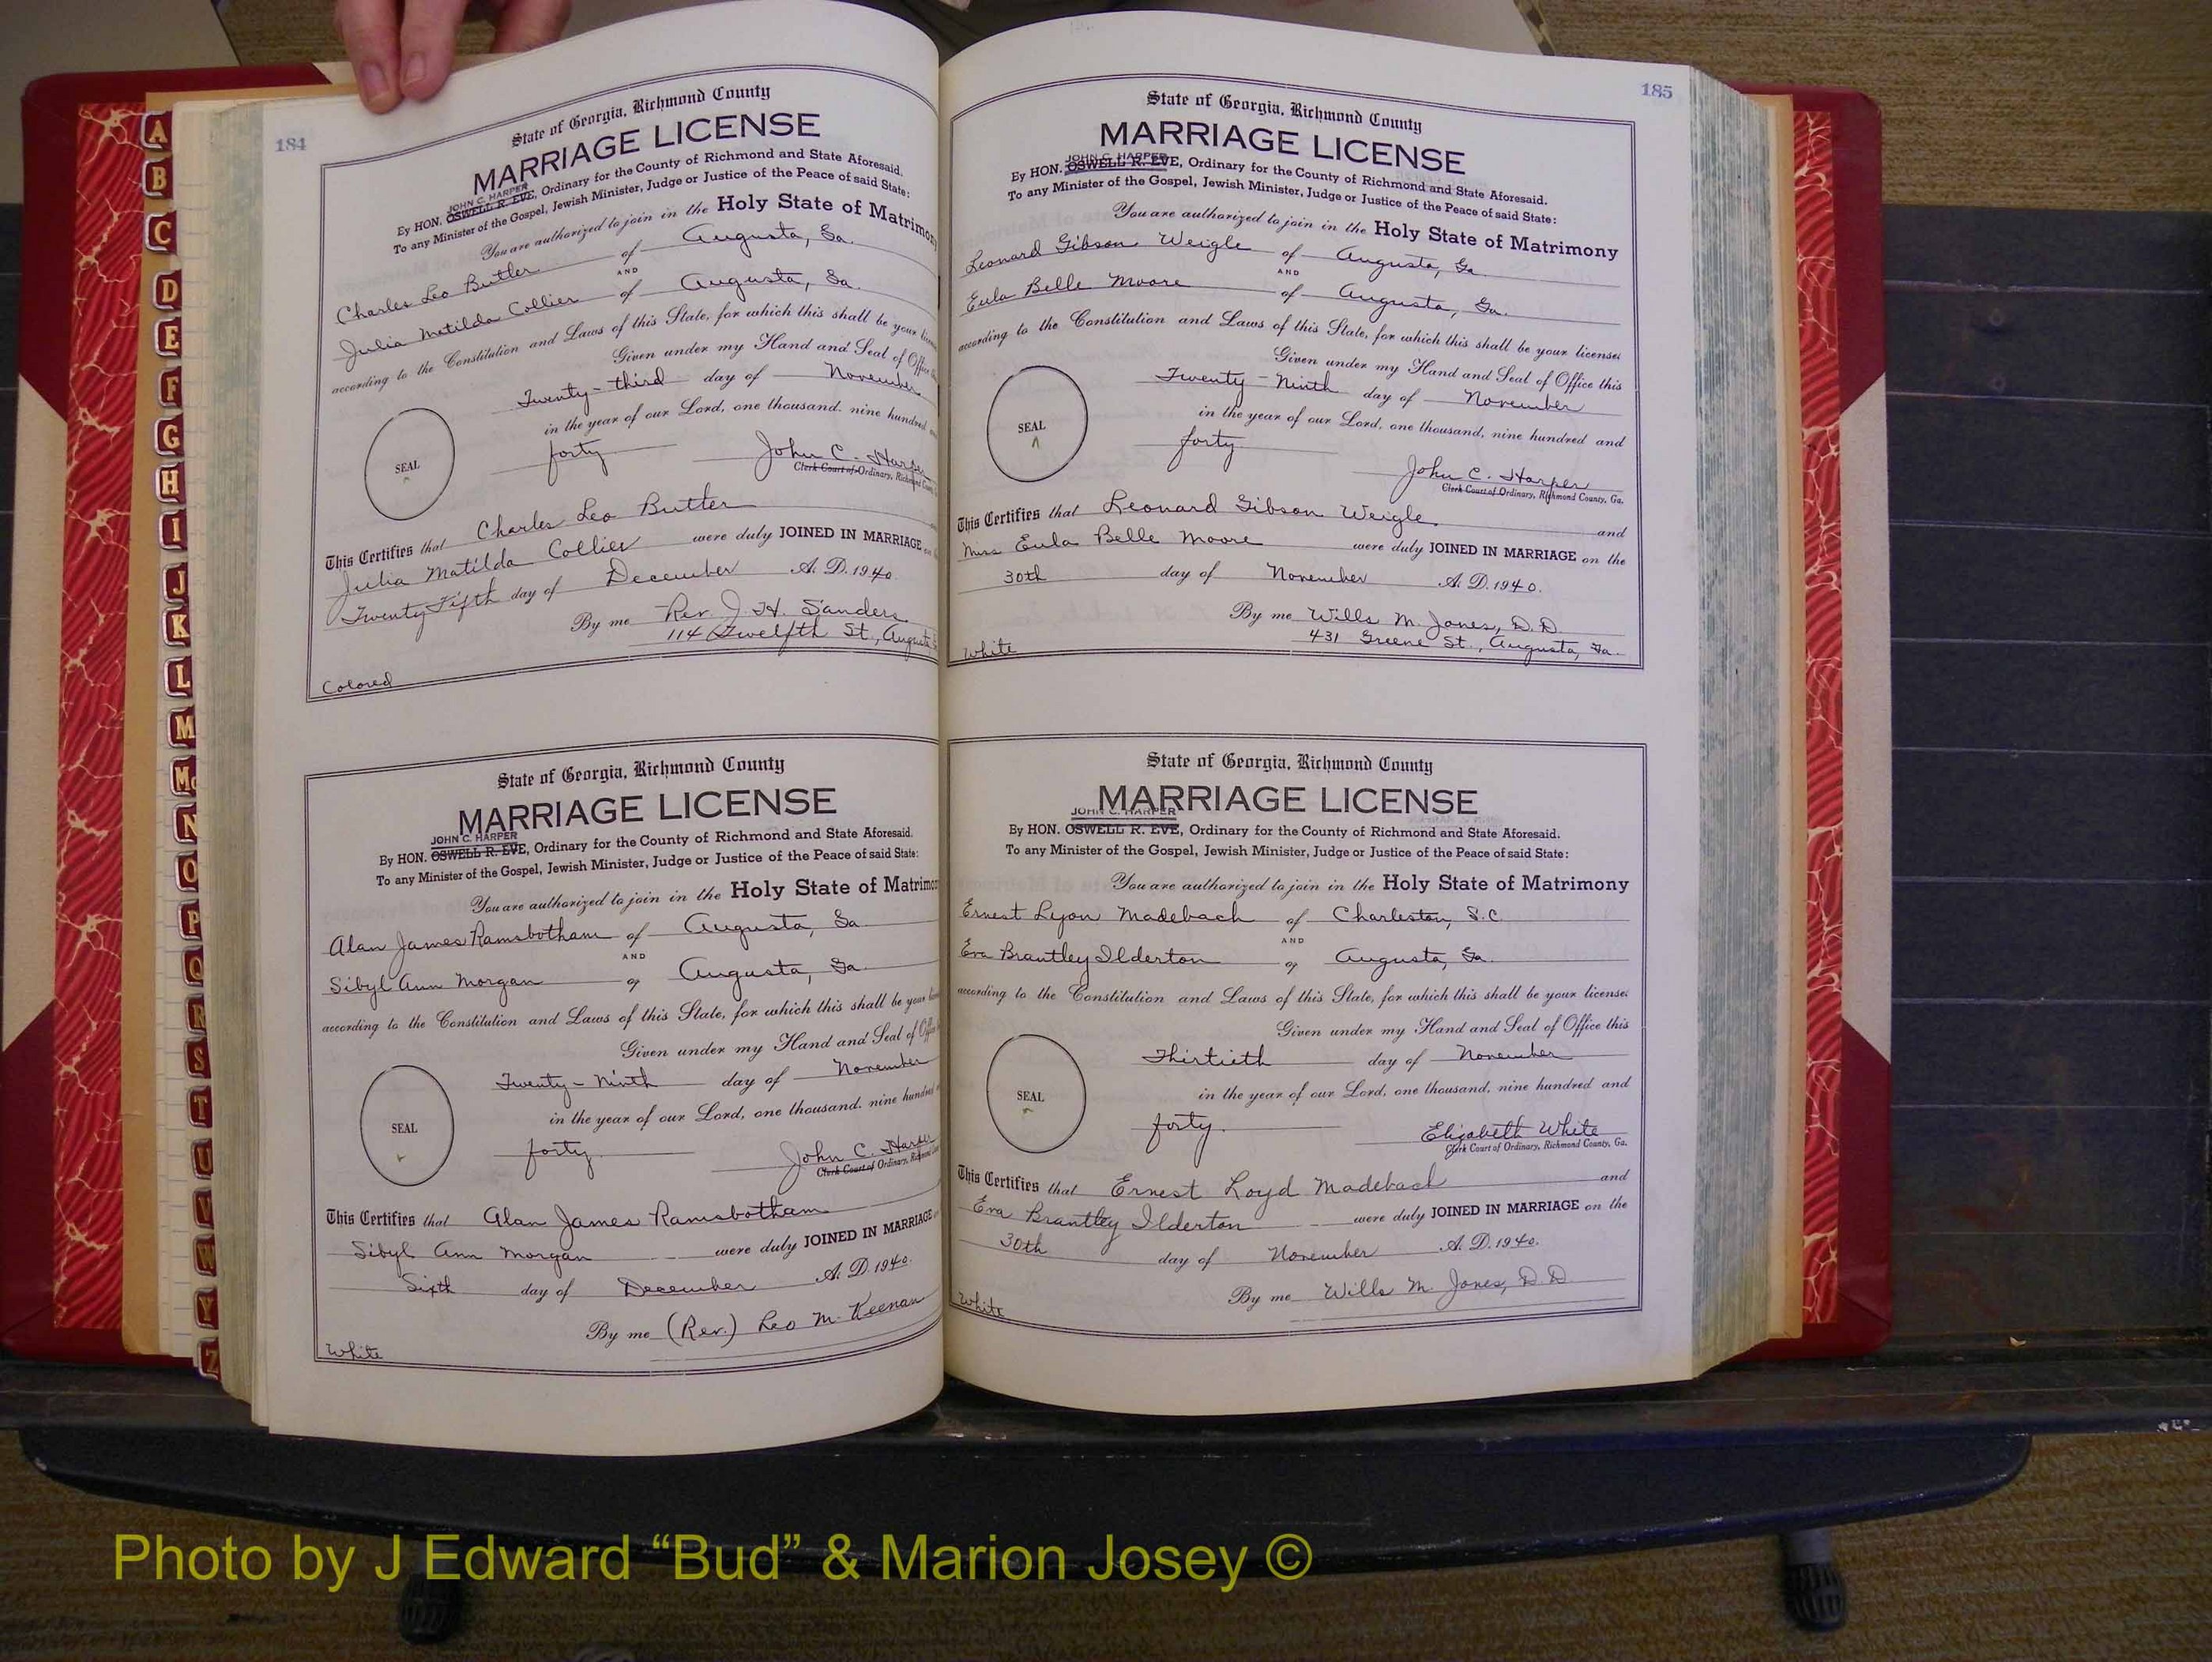 A
B
C
D
E
F
G
H
I
J
K
L
M
Mc
N
O
P
Q
R
S
T
U
V
W
Y
Z
184
State of Georgia, Richmond County
MARRIAGE LICENSE
JOHN C. HARPER
By HON. OSWELL R. EVE, Ordinary for the County of Richmond and State Aforesaid.
To any Minister of the Gospel, Jewish Minister, Judge or Justice of the Peace of said State:
You are authorized to join in the Holy State of Matrimony
Charles Leo Butler of Augusta, Ga.
AND
Julia Matilda Collier of Augusta, Ga.
according to the Constitution and Laws of this State, for which this shall be your
Given under my Hand and Seal of Office
Twenty-third day of November
in the year of our Lord, one thousand, nine hundred
forty
SEAL
John C. Harper
Clerk Court of Ordinary, Richmond
This Certifies that Charles Leo Butler
Julia Matilda Collier were duly JOINED IN MARRIAGE
Twenty Fifth day of December A. D. 1940
By me Rev. J. H. Sanders
114 Twelfth St., Augusta
Colored
State of Georgia, Richmond County
MARRIAGE LICENSE
JOHN C. HARPER
By HON. OSWELL R. EVE, Ordinary for the County of Richmond and State Aforesaid.
To any Minister of the Gospel, Jewish Minister, Judge or Justice of the Peace of said State:
You are authorized to join in the Holy State of Matrimo
Alan James Ramsbotham of Augusta, Ga.
AND
Sibyl Ann Morgan of Augusta, Ga.
according to the Constitution and Laws of this State, for which this shall be your
Given under my Hand and Seal of
Twenty-Ninth day of November
in the year of our Lord, one thousand, nine hundred
forty
SEAL
John C. Harper
Clerk Court of Ordinary,
This Certifies that Alan James Ramsbotham
Sibyl Ann Morgan were duly JOINED IN MARRIAGE
Sixth day of December A. D. 1940.
By me (Rev.) Leo M. Keenan
White
185
State of Georgia, Richmond County
MARRIAGE LICENSE
JOHN C. HARPER
By HON. OSWELL R. EVE, Ordinary for the County of Richmond and State Aforesaid.
To any Minister of the Gospel, Jewish Minister, Judge or Justice of the Peace of said State:
You are authorized to join in the Holy State of Matrimony
Leonard Gibson Weigle of Augusta, Ga.
AND
Eula Belle Moore of Augusta, Ga.
according to the Constitution and Laws of this State, for which this shall be your license:
Given under my Hand and Seal of Office this
Twenty-Ninth day of November
in the year of our Lord, one thousand, nine hundred and
forty
SEAL
John C. Harper
Clerk Court of Ordinary, Richmond County, Ga.
This Certifies that Leonard Gibson Weigle. and
Miss Eula Belle Moore were duly JOINED IN MARRIAGE on the
30th day of November A. D. 1940.
By me Wills M. Jones, D.D.
431 Greene St., Augusta, Ga.
White
State of Georgia, Richmond County
MARRIAGE LICENSE
JOHN C. HARPER
By HON. OSWELL R. EVE, Ordinary for the County of Richmond and State Aforesaid.
To any Minister of the Gospel, Jewish Minister, Judge or Justice of the Peace of said State:
You are authorized to join in the Holy State of Matrimony
Ernest Lyon Madebach of Charleston, S.C.
AND
Eva Brantley Ilderton of Augusta, Ga.
according to the Constitution and Laws of this State, for which this shall be your license:
Given under my Hand and Seal of Office this
Thirtieth day of November
in the year of our Lord, one thousand, nine hundred and
forty.
SEAL
Elizabeth White
Clerk Court of Ordinary, Richmond County, Ga.
This Certifies that Ernest Loyd Madebach and
Eva Brantley Ilderton were duly JOINED IN MARRIAGE on the
30th day of November A. D. 1940.
By me Wills M. Jones, D.D.
White
Photo by J Edward “Bud” & Marion Josey ©